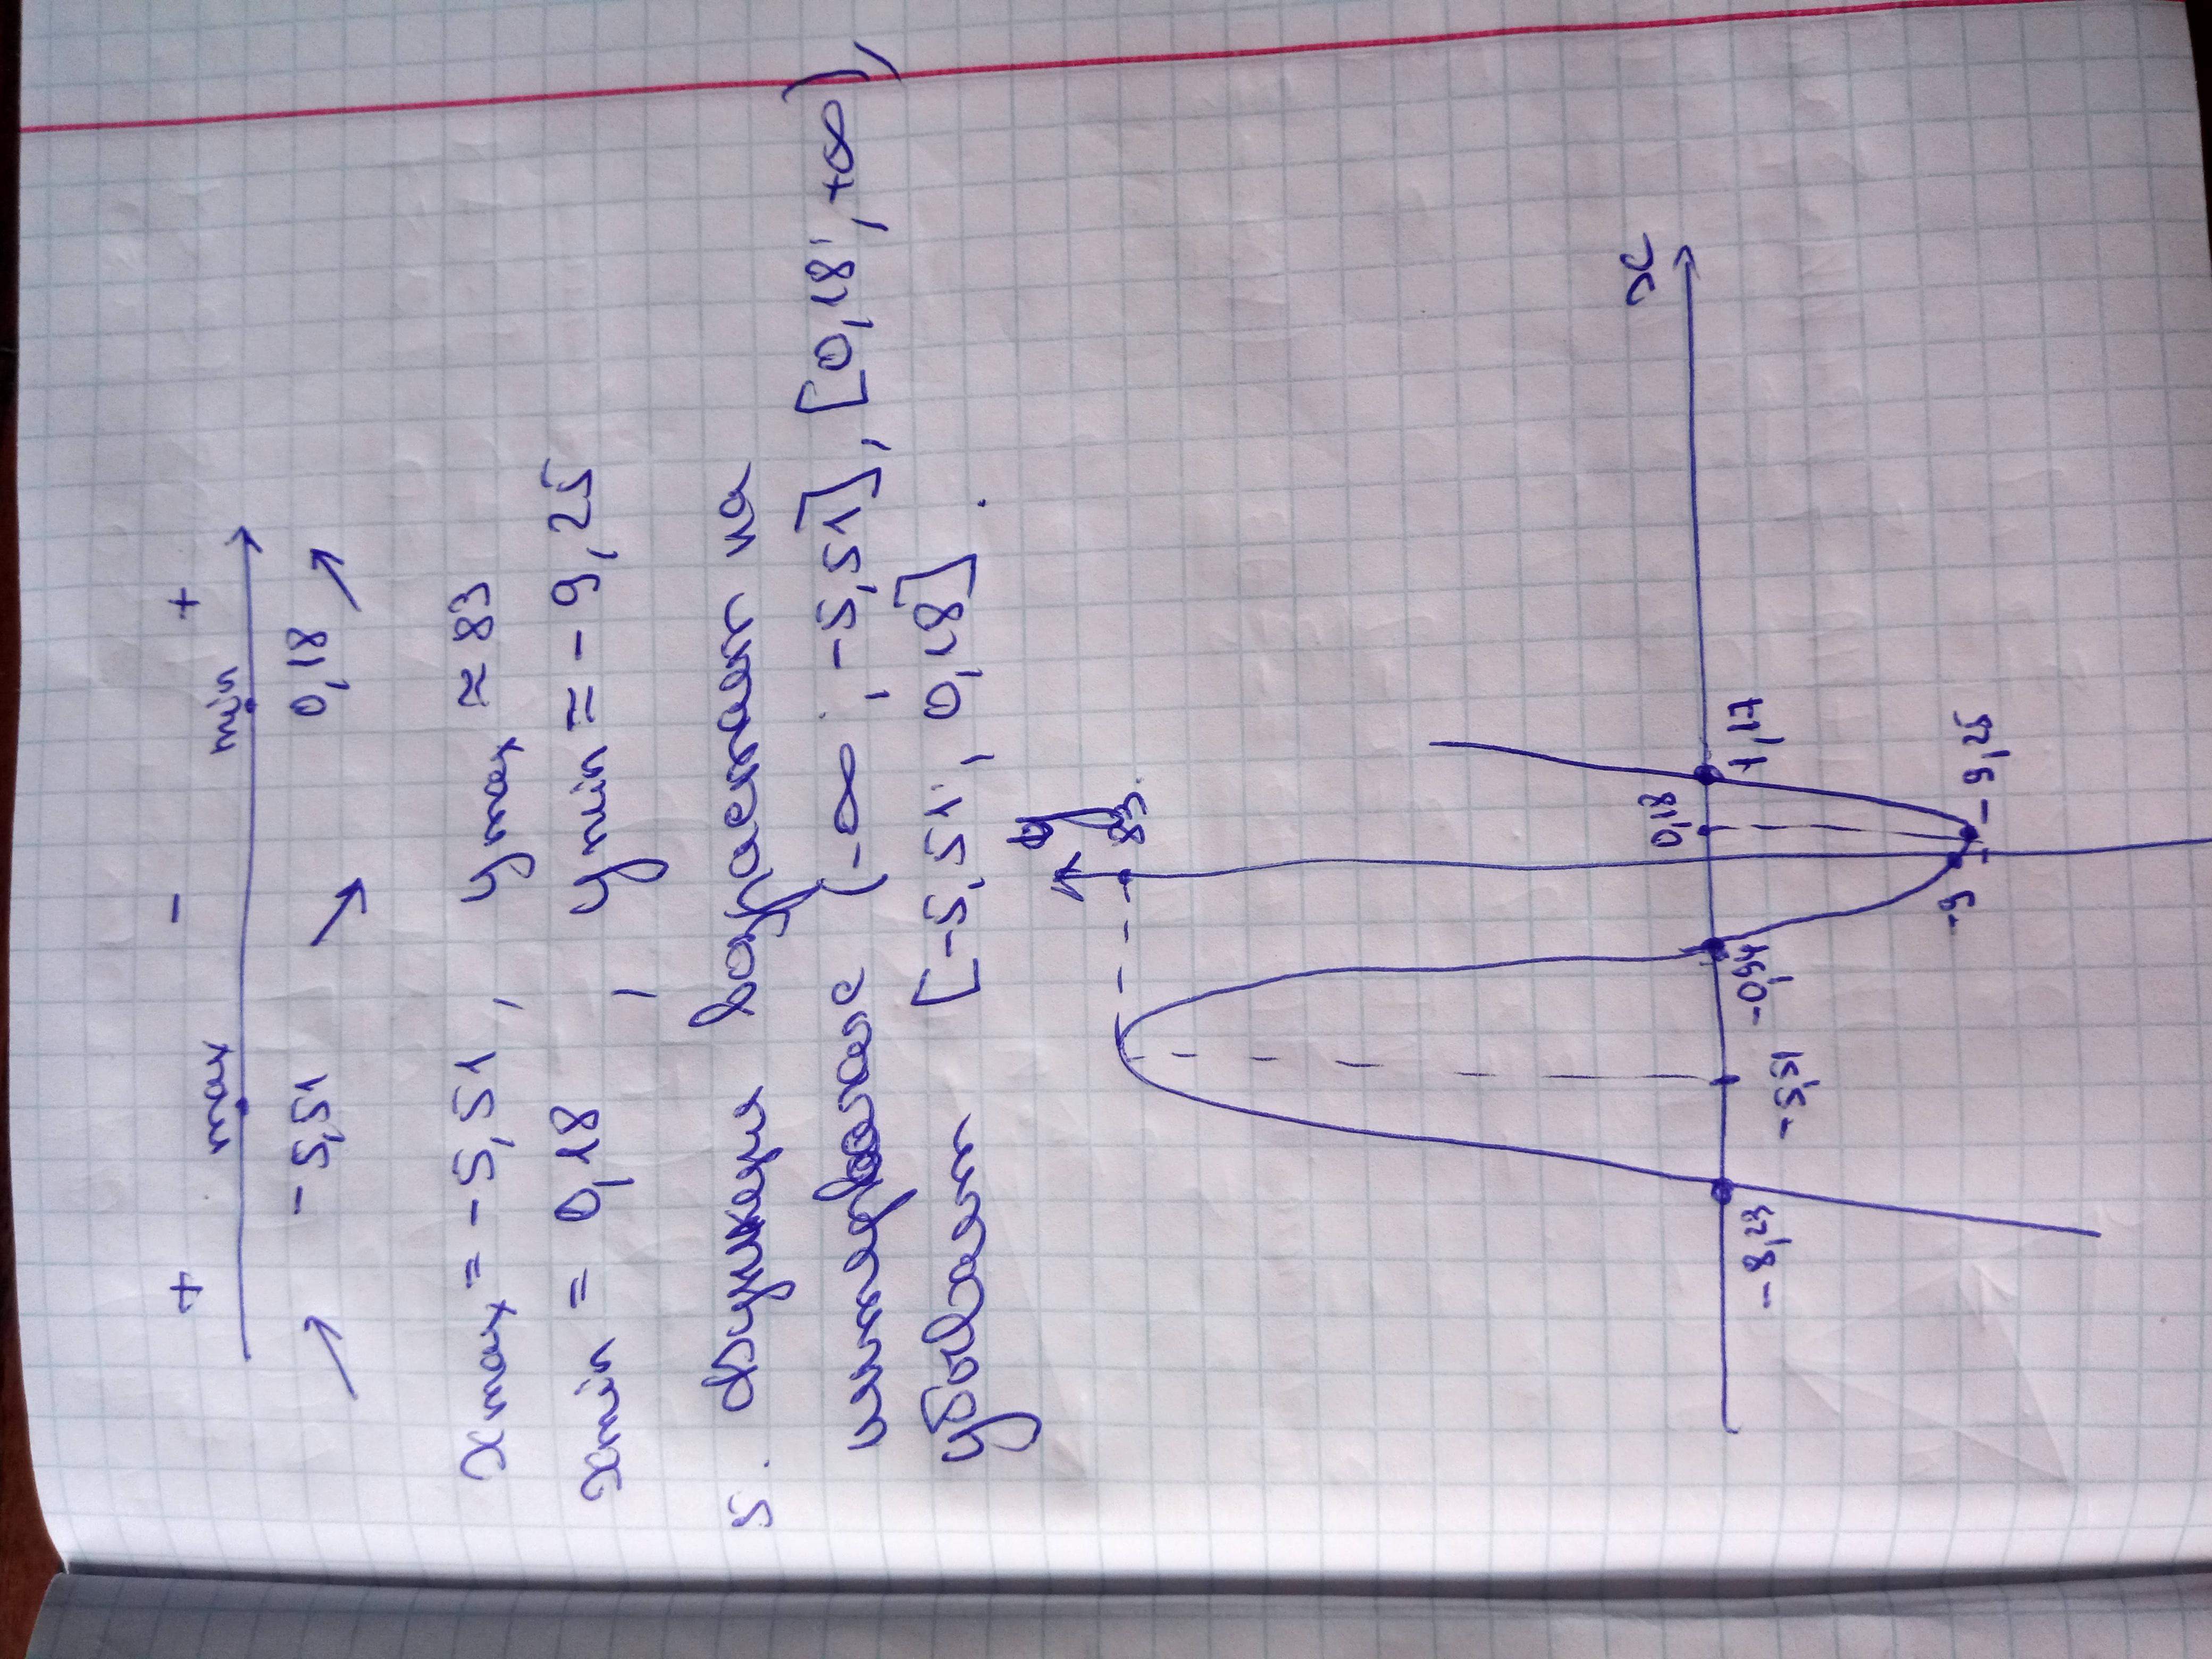 + - +
max min
-5,51 0,18
xmax = -5,51, ymax ≈ 83
xmin = 0,18, ymin ≈ -9,25
5. функция возрастает на
интервале (-∞; -5,51], [0,18; +∞)
убывает [-5,51; 0,18].
y
83
x
0,18
-8,23 -5,51 -0,94 1,17
-9
-9,25